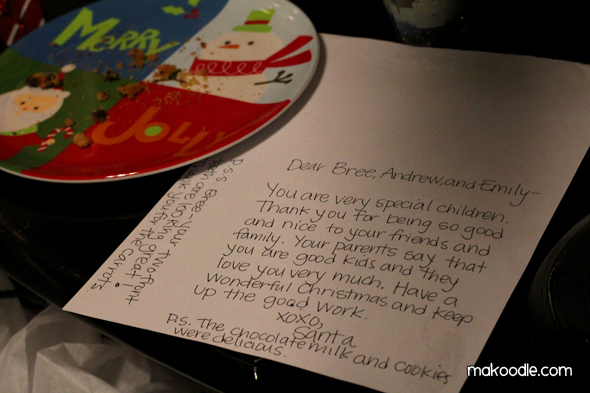 MERRY
JOLLY
Dear Bree, Andrew, and Emily-
You are very special children.
Thank you for being so good
and nice to your friends and
family. Your parents say that
you are good kids and they
love you very much. Have a
wonderful Christmas and keep
up the good work.
xoxo,
Santa
P.s. The chocolate milk and cookies
were delicious.
P.s.s. Bree-your two front
teeth are looking great!
Thank you for the carrots.
makoodle.com